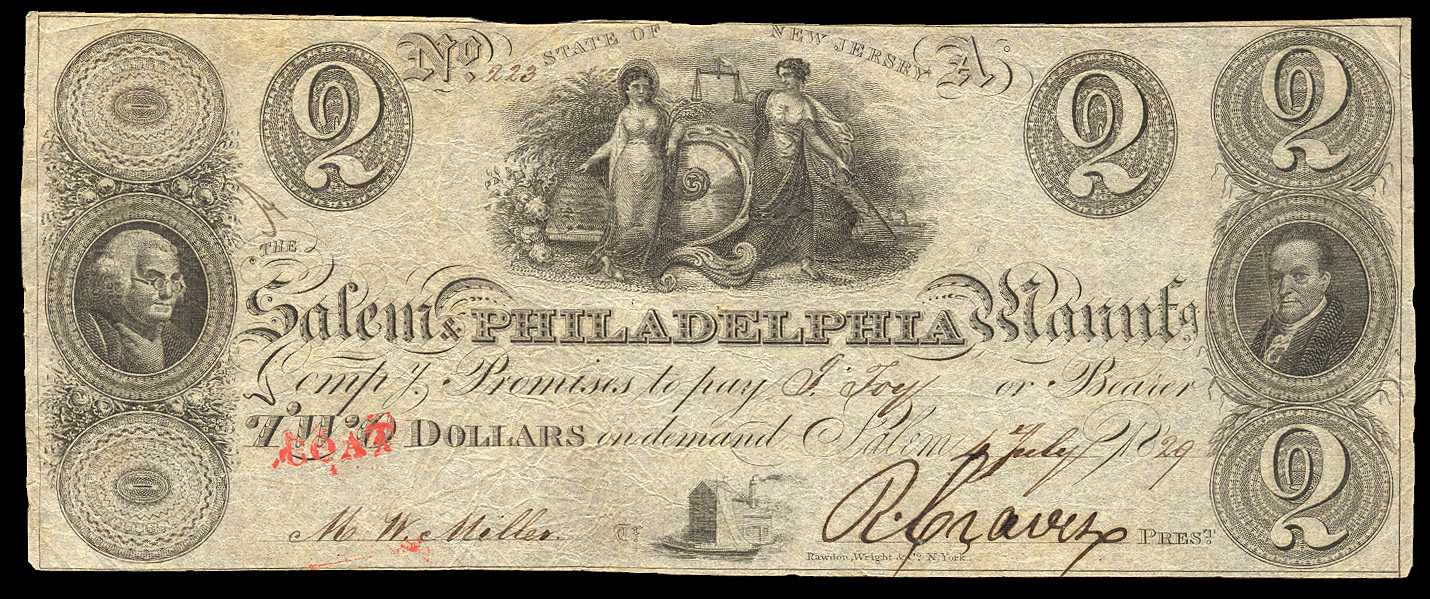 No. 223 STATE OF NEW JERSEY A
2 2 2
THE
Salem & PHILADELPHIA Manufg
Compy. Promises to pay J. Foy or Bearer
TWO DOLLARS on demand Salem 4 July 1829
M. W. Miller Tr R. Craven PREST.
2
Rawdon, Wright & Co. N. York